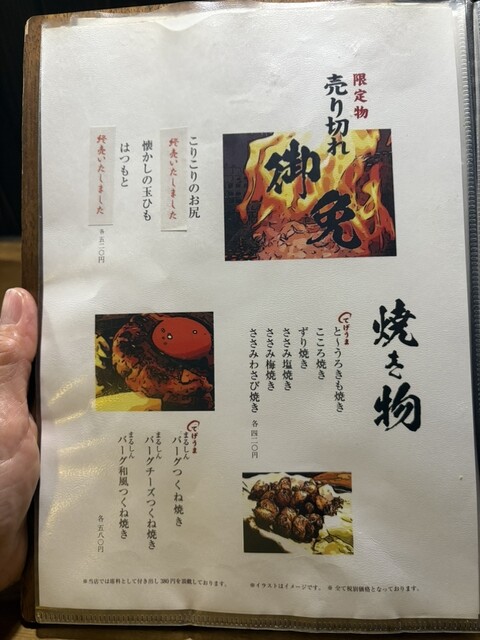 限定物
売り切れ
御免
こりこりのお尻
終売いたしました
懐かしの玉ひも
はつもと
終売いたしました
各五二〇円
焼き物
てげうま
と〜うろきも焼き
こころ焼き
ずり焼き
ささみ塩焼き
ささみ梅焼き
ささみわさび焼き
各四二〇円
てげうま
まるしん
バーグつくね焼き
まるしん
バーグチーズつくね焼き
まるしん
バーグ和風つくね焼き
各五八〇円
※当店では席料として付き出し380円を頂戴しております。
※イラストはイメージです。 ※全て税別価格となっております。